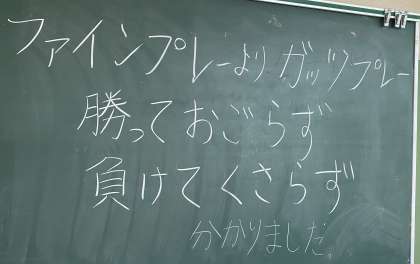 ファインプレーより ガッツプレー
勝っておごらず
負けてくさらず
分かりましだ